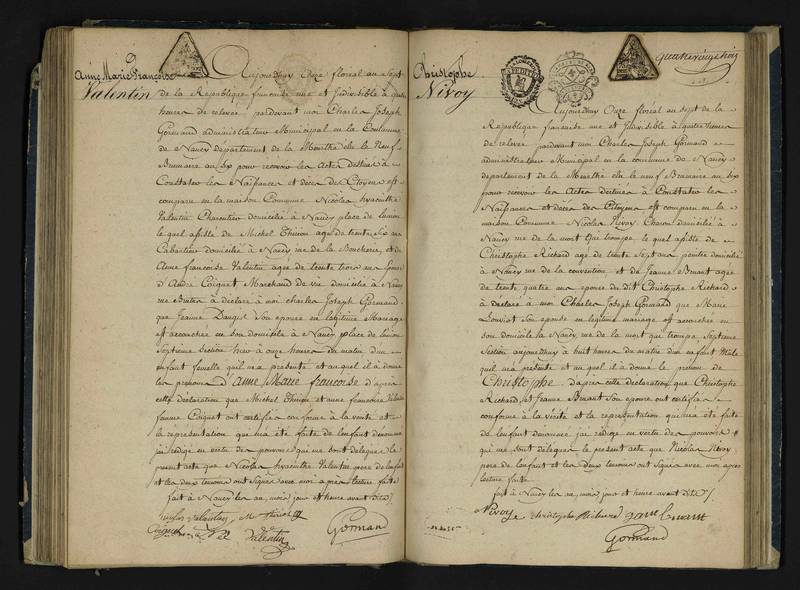 Anne Marie Françoise
Valentin
Aujourdhuy Onze floréal an Sept
de la République française une et Indivisible à quatre
heures de relevée, pardevant moi Charles Joseph
Gormand administrateur Municipal en la Commune
de Nancy département de la Meurthe élu le Neuf
Brumaire an six pour recevoir les Actes destinés à
Constater les Naissances et décès des Citoyens est
comparu en la maison Commune Nicolas hyacinthe
Valentin Charpentier domicilié à Nancy place de
le quel assisté de Michel Thirion agé de trente six ans
Cabartier domicilié à Nancy rue de la Boucherie, et de
Anne françoise Valentin agée de trente trois ans
d'André Coignet Marchand de vin domicilié à Nancy
rue à déclaré à moi charles Joseph Gormand
que Jeanne Son épouse en légitime Mariage
est accouchée en son domicile à Nancy place de
Septieme Section hier à onze heures du matin d'un
enfant femelle qu'il m'a présenté et auquel il a donné
les prénoms d'Anne Marie françoise d'après
cette déclaration que Michel Thirion et anne francoise Valentin
femme Coignet ont certifiée conforme à la vérité et
la représentation qui m'a été faite de l'enfant dénommé
j'ai rédigé en vertu des pouvoirs qui me sont délégués le
présent acte que Nicolas hyacinthe Valentin père de l'enfant
et les deux témoins ont signés avec moi après lecture faite
fait à Nancy les an, mois, jour et heure avant dits /.
nicolas Valentin M thirion
Coignet Valentin
Gormand
quatrevingt trois
Christophe
Nivoy
Aujourdhuy Onze floréal an sept de la
République française une et Indivisible à quatre heures
de relevée pardevant moi Charles Joseph Gormand
administrateur Municipal en la commune de Nancy
département de la Meurthe élu le neuf Brumaire an six
pour recevoir les Actes destinés à Constater les
Naissances et décès des Citoyens est comparu en la
maison Commune Nicolas Nivoy Charon domicilié à
Nancy rue de la mort qui trompe le quel assisté de
Christophe Richard agé de trente sept ans peintre domicilié
à Nancy rue de la convention et de Jeanne Bruant agée
de trente quatre ans épouse du dit Christophe Richard
à déclaré à moi Charles Joseph Gormand que Marie
Louviot son épouse en légitime mariage est accouchée en
son domicile à Nancy, rue de la mort qui trompe Septieme
Section aujourdhuy à huit heures du matin d'un enfant Mâle
qu'il m'a présenté et auquel il a donné le prénom de
Christophe d'après cette déclaration que Christophe
Richard et Jeanne Bruant son épouse ont certifiée
conforme à la vérité et la représentation qui m'a été faite
de l'enfant dénommé j'ai rédigé en vertu des pouvoirs
qui me sont délégués le présent acte que Nicolas Nivoy
père de l'enfant et les deux témoins ont signés avec moi après
lecture faite
fait à Nancy les an, mois, jour et heure avant dits /.
Nivoy christophe Richard
Gormand